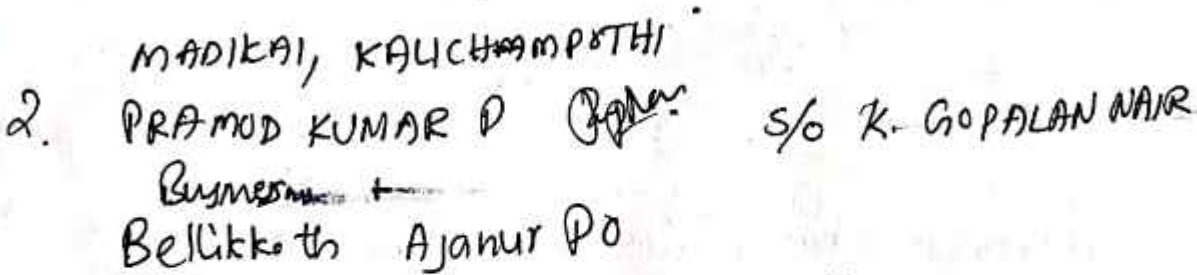 MADIKAI, KALICHAMPOTHI
2. PRAMOD KUMAR P S/o K. GOPALAN NAIR
Busnesm
Bellikkoth Ajanur PO